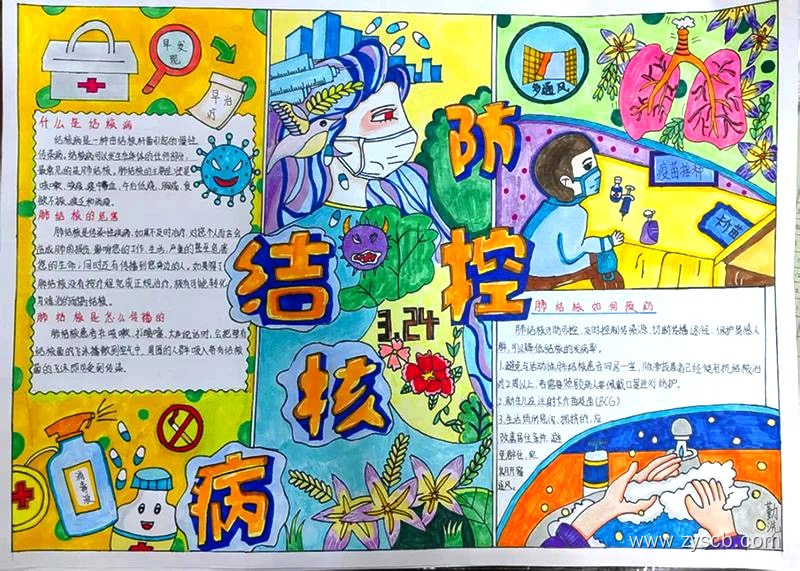 早发
现
早治
疗
什么是结核病
结核病是一种由结核杆菌引起的慢性
传染病,结核病可以发生在身体的任何部位,
最常见的是肺结核。肺结核的主要症状是
咳嗽、咳痰、痰中带血、午后低烧、胸痛、食
欲不振、疲乏和消瘦。
肺结核的危害
肺结核是传染性疾病,如果不及时治疗,对您个人而言会
造成肺的损伤,影响您的工作、生活,严重的甚至危害
您的生命;同时还有传播到您身边的人。如果得了
肺结核没有按疗程完成正规治疗,
难治的耐药结核。
肺结核是怎么传播的
肺结核患者在咳嗽、打喷嚏、大声说话时,会把带有
结核菌的飞沫播散到空气中,周围的人群吸入带有结核
菌的飞沫即可受到传染。
消毒液
防
控
结
核
病
3.24
多通风
疫苗接种
卡介苗
肺结核如何预防
肺结核可防可控,及时控制传染源,切断传播途径,保护易感人
群,可以降低结核的发病率。
1.避免与活动性肺结核患者同居一室,除非该患者已经使用抗结核治
疗2周以上,
2.新生儿应注射卡介苗疫苗(BCG)
3.生活场所
改善居住条件,避
免群住,
常开窗
通风。
www.zyscb.com